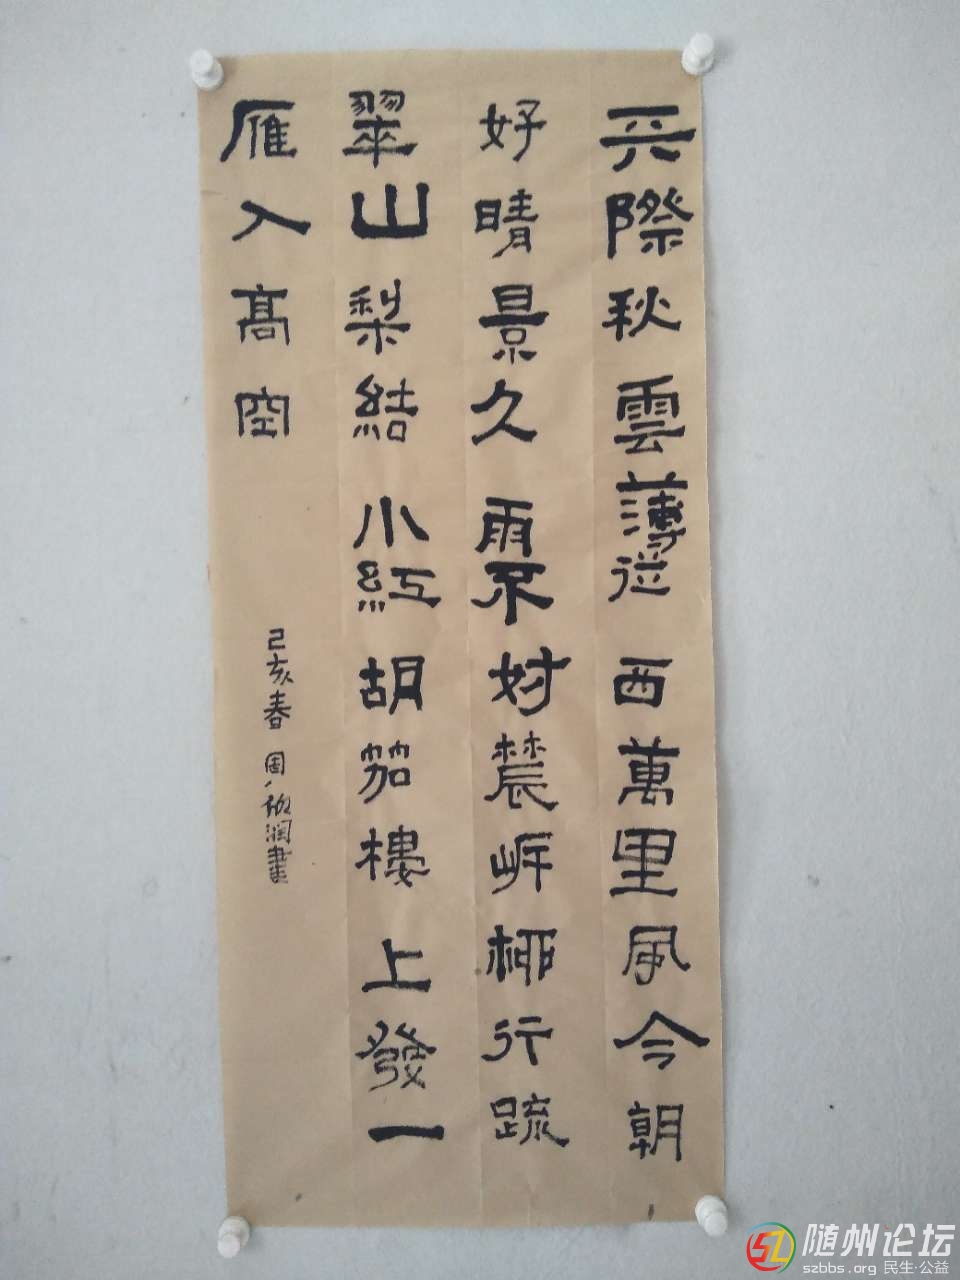 天際秋雲薄從西萬里風今朝
好晴景久雨不妨農岸柳行疏
翠山梨結小紅胡笳樓上發一
雁入高空
己亥春 周潤書
随州论坛
szbbs.org 民生·公益